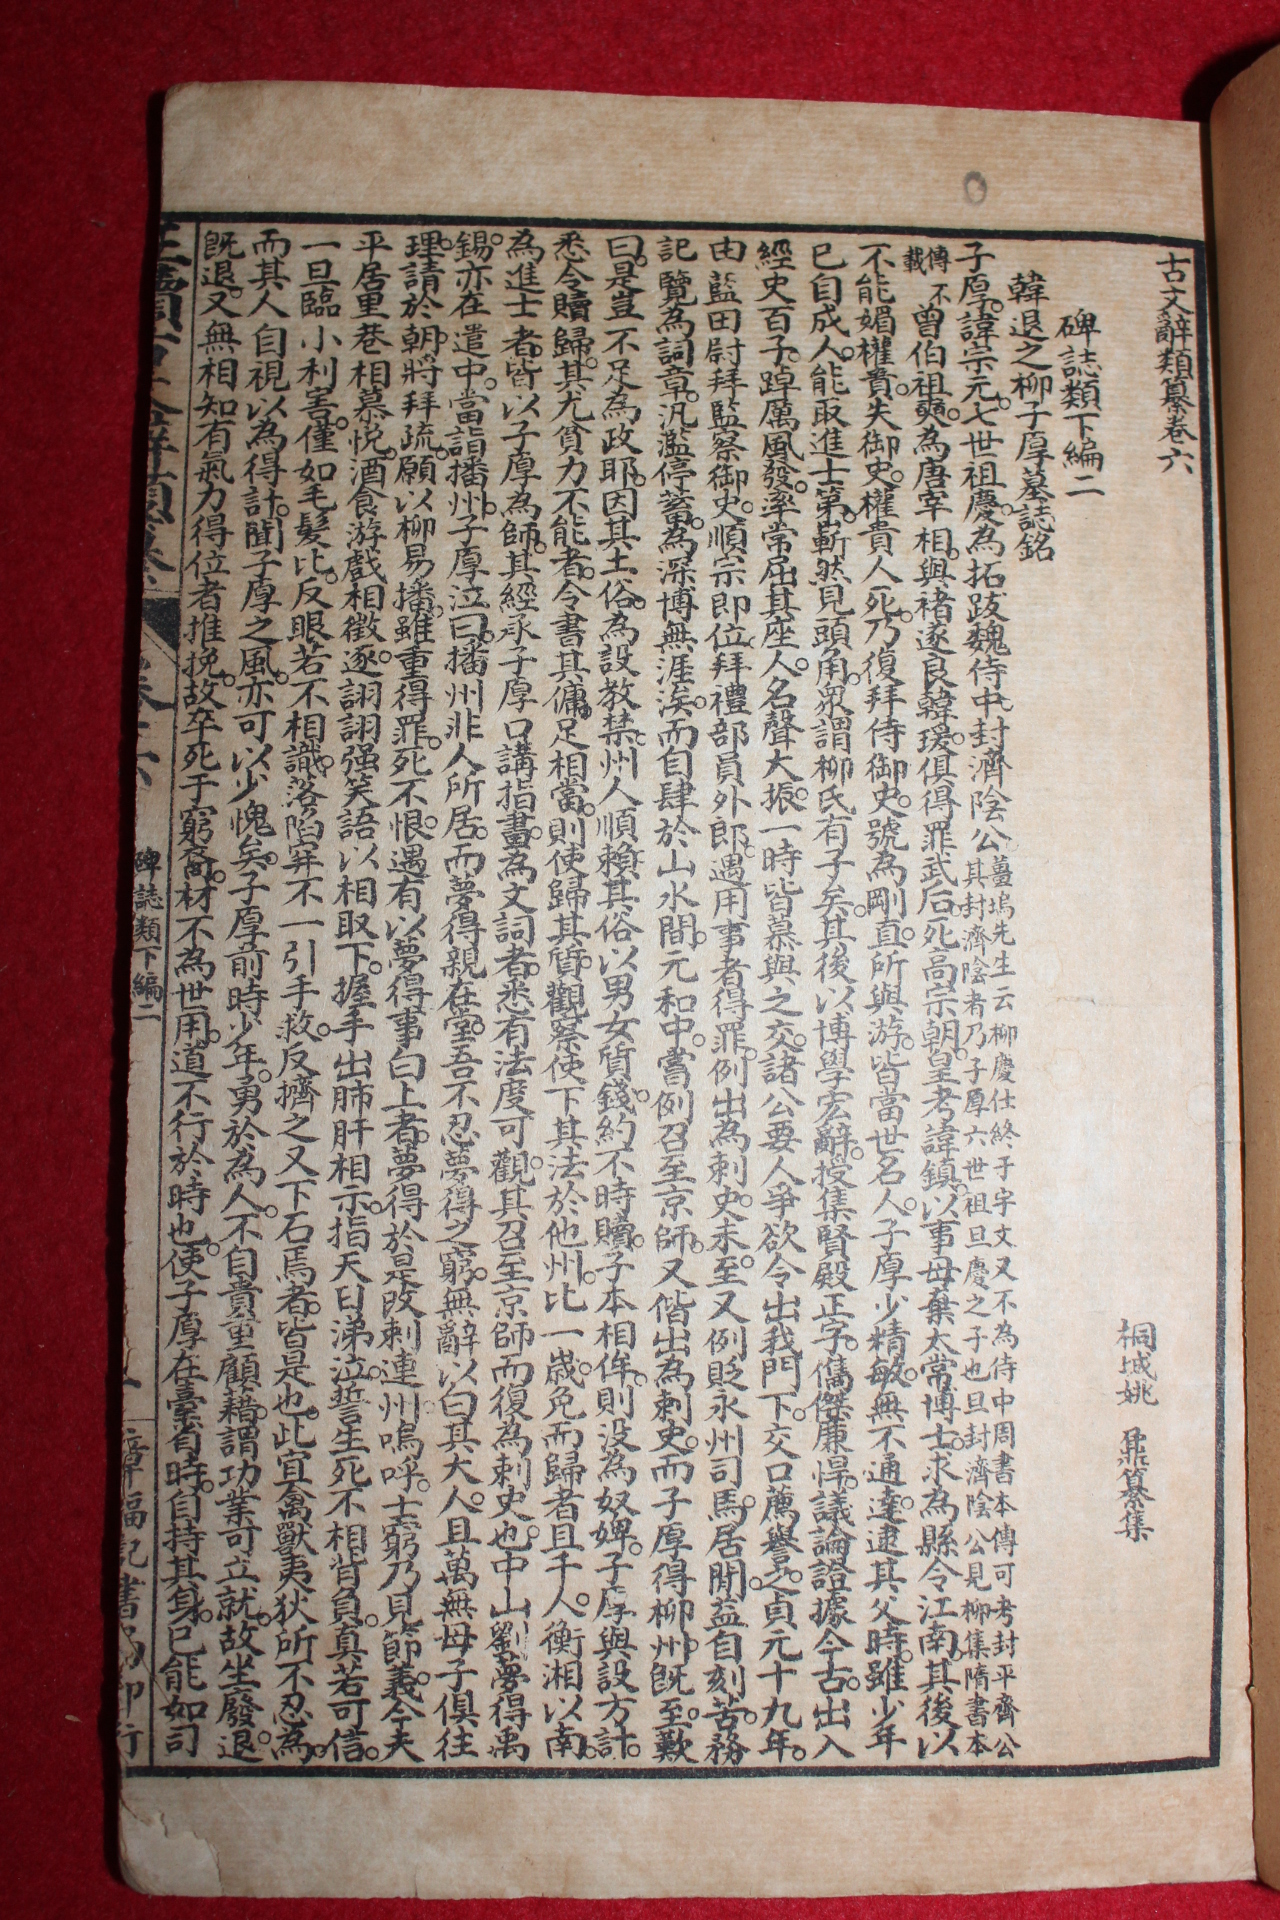 古文辭類纂卷六
桐城姚 鼐纂集
碑誌類下編二
韓退之柳子厚墓誌銘
子厚。諱宗元。七世祖慶。為拓跋魏侍中。封濟陰公。薑塢先生云柳慶仕終于宇文又不為侍中周書本傳可考封平齊公其封濟陰者乃子厚六世祖旦慶之子也旦封濟陰公見柳集隋書本
傳不載曾伯祖奭。為唐宰相。與褚遂良韓瑗。俱得罪武后。死高宗朝。皇考諱鎮。以事母棄太常博士。求為縣令江南。其後以
不能媚權貴。失御史。權貴人死。乃復拜侍御史。號為剛直。所與游。皆當世名人。子厚少精敏。無不通達。逮其父時。雖少年
已自成人。能取進士第。嶄然見頭角。眾謂柳氏有子矣。其後以博學宏辭。授集賢殿正字。儁傑廉悍。議論證據今古。出入
經史百子。踔厲風發。率常屈其座人。名聲大振。一時皆慕與之交。諸公要人爭欲令出我門下。交口薦譽之。貞元十九年。
由藍田尉拜監察御史。順宗即位。拜禮部員外郎。遇用事者得罪。例出為刺史。未至。又例貶永州司馬。居閒益自刻苦。務
記覽為詞章。汎濫停蓄。為深博無涯涘。而自肆於山水間。元和中。嘗例召至京師。又偕出為刺史。而子厚得柳州。旣至。歎
曰。是豈不足為政耶。因其土俗。為設教禁。州人順賴。其俗以男女質錢。約不時贖。子本相侔。則沒為奴婢。子厚與設方計
悉令贖歸。其尤貧力不能者。令書其傭。足相當。則使歸其質。觀察使下其法於他州。比一歲。免而歸者且千人。衡湘以南。
為進士者。皆以子厚為師。其經承子厚口講指畫。為文詞者。悉有法度可觀。其召至京師而復為刺史也。中山劉夢得禹
錫。亦在遣中。當詣播州。子厚泣曰。播州非人所居。而夢得親在堂。吾不忍夢得之窮。無辭以白其大人。且萬無母子俱往
理。請於朝。將拜疏。願以柳易播。雖重得罪。死不恨。遇有以夢得事白上者。夢得於是改刺連州。嗚呼。士窮乃見節義。今夫
平居里巷相慕悅。酒食游戲相徵逐。詡詡强笑語以相取下。握手出肺肝相示。指天日涕泣。誓生死不相背負。真若可信。
一旦臨小利害。僅如毛髮比。反眼若不相識。落陷穽不一引手救。反擠之又下石焉者。皆是也。此宜禽獸夷狄所不忍為。
而其人自視以為得計。聞子厚之風。亦可以少愧矣。子厚前時少年。勇於為人。不自貴重顧藉。謂功業可立就。故坐廢退。
旣退。又無相知有氣力得位者推挽。故卒死于窮裔。材不為世用。道不行於時也。使子厚在臺省時。自持其身。已能如司
碑誌類下編二